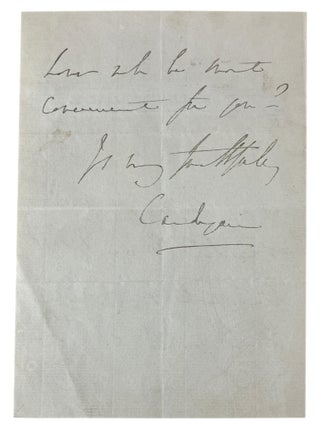 hour wh be most
Convenient for you?
Yrs very faithfully
Cardigan